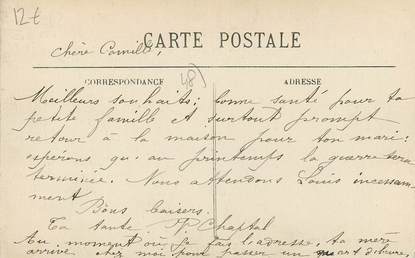 12 €
CARTE POSTALE
Chère Camille,
CORRESPONDANCE
48)
ADRESSE
Meilleurs souhaits; bonne santé pour ta
petite famille et surtout prompt
retour à la maison pour ton mari:
espérons qu'au printemps la guerre sera
terminée. Nous attendons Louis incessam-
ment
Bons baisers.
Ta tante P. Chaptal
Au moment où je fais l'adresse, ta mère
arrive chez moi pour passer un quart d'heure,